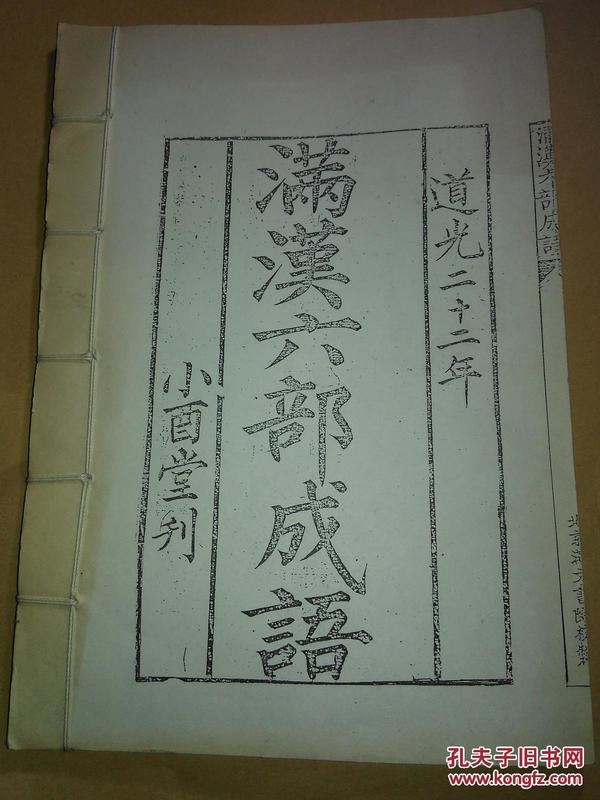 道光二十二年
滿漢六部成語
小酉堂刊
滿漢六部成語
孔夫子旧书网
www.kongfz.com